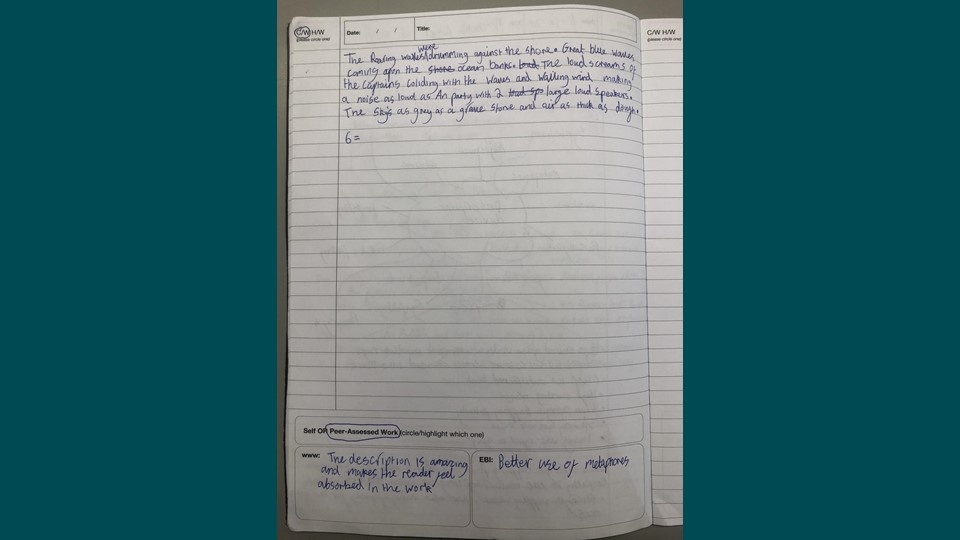 C/W H/W
(please circle one)
Date: / /
Title:
C/W H/W
(please circle one)
were
The Roaring waves drumming against the shore. Great blue waves
coming apon the shore ocean banks. The loud screams of
the captains coliding with the waves and walling wind making
a noise as loud as An party with 2 loud spe large loud speakers.
The sky's as grey as a grave stone and air as thick as
6=
Self OR Peer-Assessed Work (circle/highlight which one)
WWW: The description is amazing
and makes the reader feel
absorbed in the work
EBI: Better use of metaphores